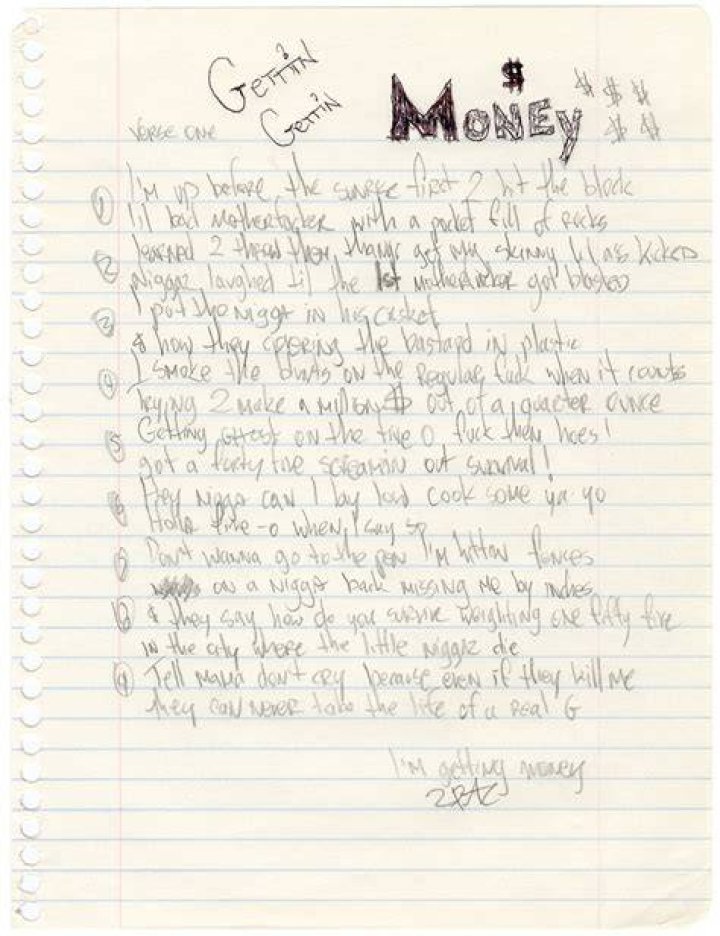 GETTIN
GETTIN
$
MONEY $ $ $ $ $
VERSE ONE
I'm up before the sunrise first 2 hit the block
① lil bad motherfucker with a pocket full of rocks
learned 2 throw them thangs get my skinny lil ass kicked
② Niggaz laughed til the 1st motherfucker got blasted
I put the nigga in his casket
③ & now they covering the bastard in plastic
I smoke the blunts on the regular, fuck when it counts
④ trying 2 make a million $ out of a quarter ounce
Getting ghost on the five O fuck them hoes!
⑤ got a forty five screamin out survival!
Hey nigga can I lay low cook some ya-yo
⑥ Holla five-o when I say so
Don't wanna go to the pen I'm hittin fences
on a nigga back missing me by inches
⑧ & they say how do you survive weighting one fifty five
in the city where the little niggaz die
⑨ Tell mama don't cry because even if they kill me
they can never take the life of a real G
I'm getting money
2PAC